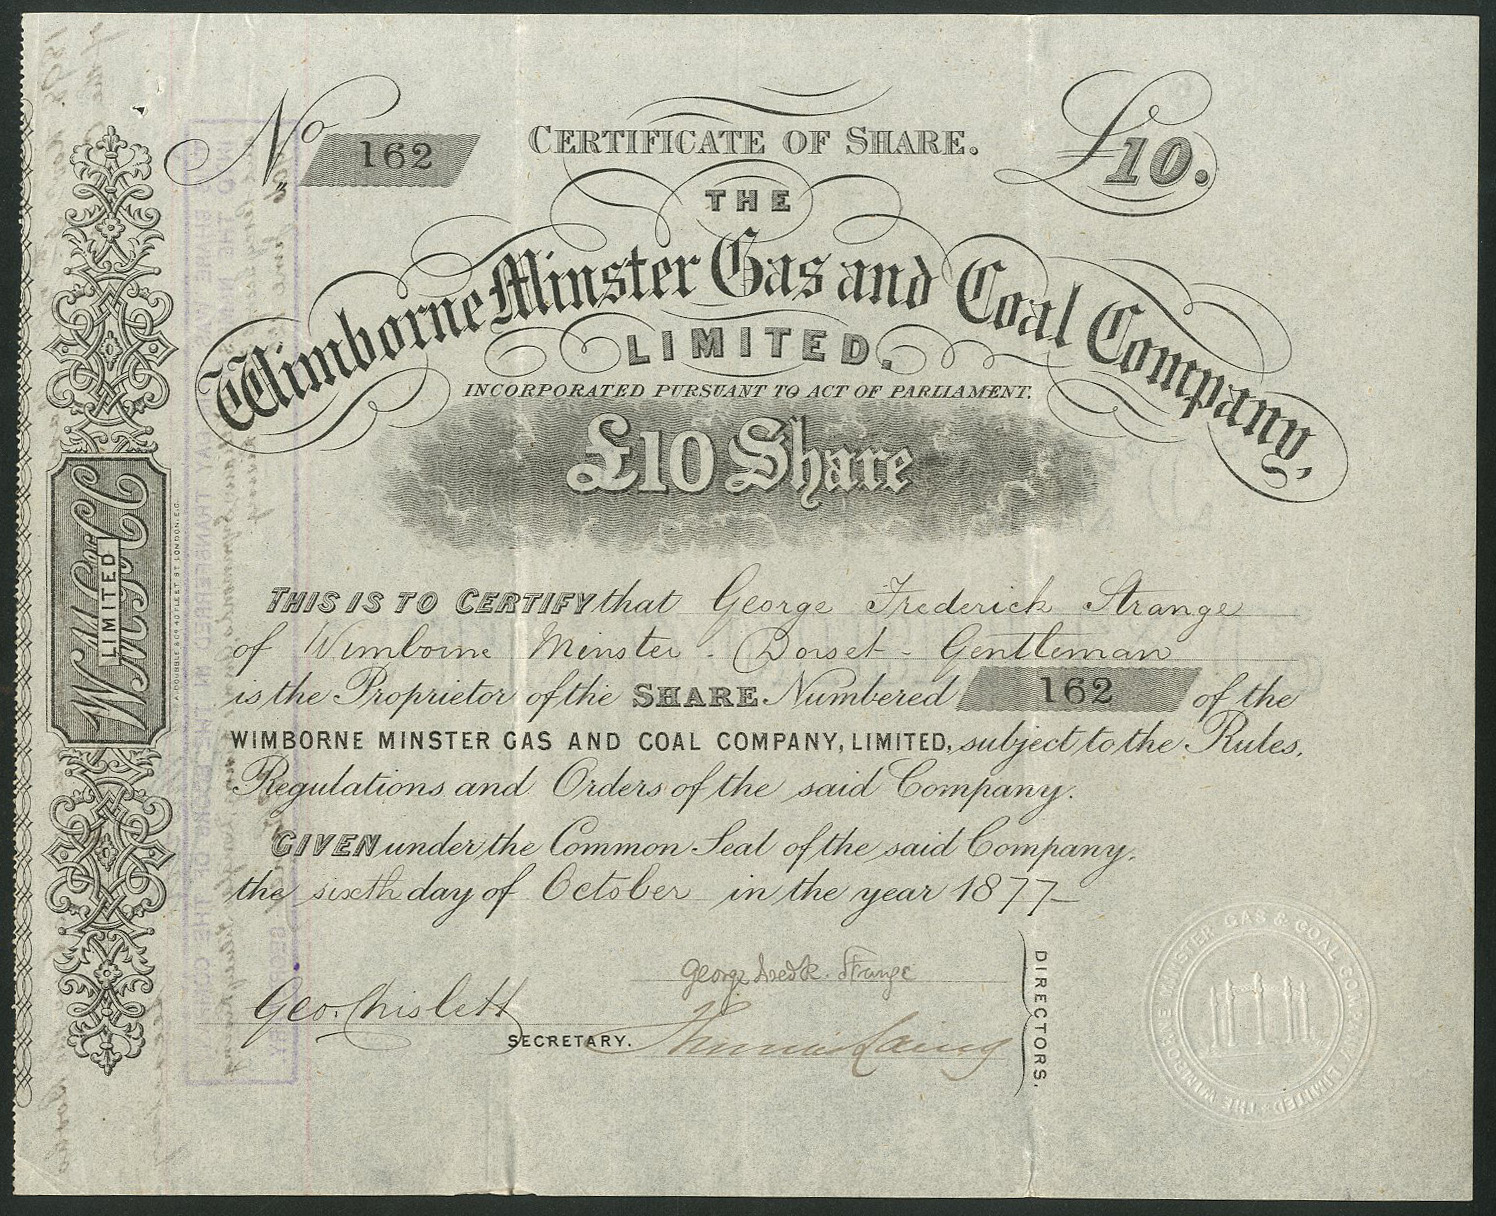 No 162
CERTIFICATE OF SHARE.
£10.
THE
Wimborne Minster Gas and Coal Company,
LIMITED.
INCORPORATED PURSUANT TO ACT OF PARLIAMENT.
£10 Share
THIS IS TO CERTIFY that George Frederick Strange
of Wimborne Minster - Dorset - Gentleman
is the Proprietor of the SHARE Numbered 162 of the
WIMBORNE MINSTER GAS AND COAL COMPANY, LIMITED, subject to the Rules,
Regulations and Orders of the said Company.
GIVEN under the Common Seal of the said Company,
the sixth day of October in the year 1877
George Fredk. Strange
Geo. Chislett
SECRETARY.
Thomas Laing
DIRECTORS.
WMG&CC
LIMITED
THE WIMBORNE MINSTER GAS & COAL COMPANY LIMITED